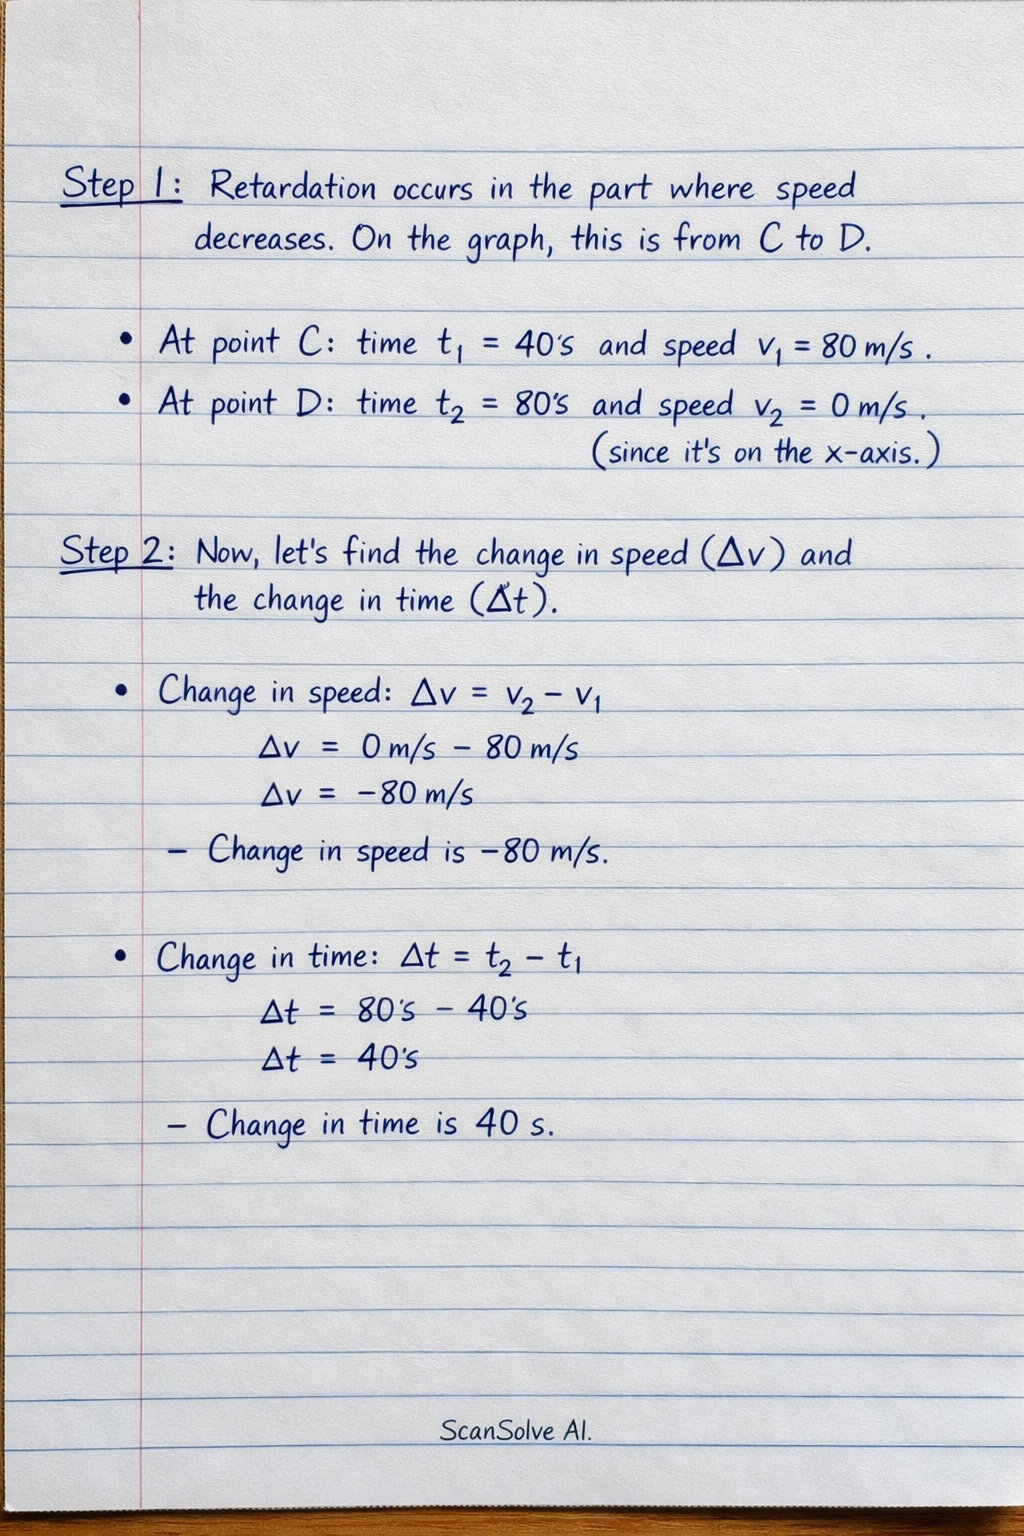 Step 1: Retardation occurs in the part where speed
decreases. On the graph, this is from C to D.
• At point C: time t₁ = 40's and speed v₁ = 80 m/s.
• At point D: time t₂ = 80's and speed v₂ = 0 m/s.
(since it's on the x-axis.)
Step 2: Now, let's find the change in speed (Δv) and
the change in time (Δt).
• Change in speed: Δv = v₂ − v₁
Δv = 0 m/s − 80 m/s
Δv = −80 m/s
– Change in speed is −80 m/s.
• Change in time: Δt = t₂ − t₁
Δt = 80's − 40's
Δt = 40's
– Change in time is 40 s.
ScanSolve AI.